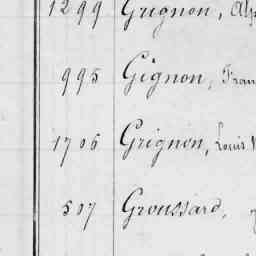 1299 Grignon, Alp
995 Gignon, Fran
1706 Grignon, Louis
507 Groussard,